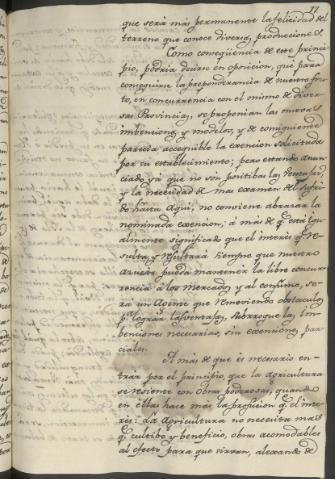 17
que será más permanente la felicidad del
terreno que conoce diversas producciones.
Como conseqüencia de este princi-
pio, podría decirse en oposicion, que para
conseguir la preponderancia de nuestro fru-
to, en concurrencia con el mismo de diver-
sas Provincias, se proponian las nuevas
imbenciones y modelos, y de consiguiente
parecia accequible la exencion solicitada
por su establecimiento; pero estando anun-
ciado ya que no son positibas las ventajas,
y la necesidad de mas examenes del sufri-
do hasta aqui, no conviene abrazar la
nominada exencion; á más de que está igu-
almente significado que el interés que re-
sulta, y resultará siempre que nuestro
aceite pueda mantener la libre concur-
rencia á los Mercados y al consumo, se-
rá un Agente que removiendo obstaculos
p.^a lograr las ventajas, subrogue las im-
benciones necesarias, sin exenciones par-
ciales.
A más de que es necesario en-
trar por el principio, que la agricultura
se resiente con obras poderosas, quando
en ellas hace más la profusion q.^e el inte-
rés: La Agricultura no necesita mas
q.^e cultibo y beneficio, obras acomodables
al efecto para que sirvan, alexando de